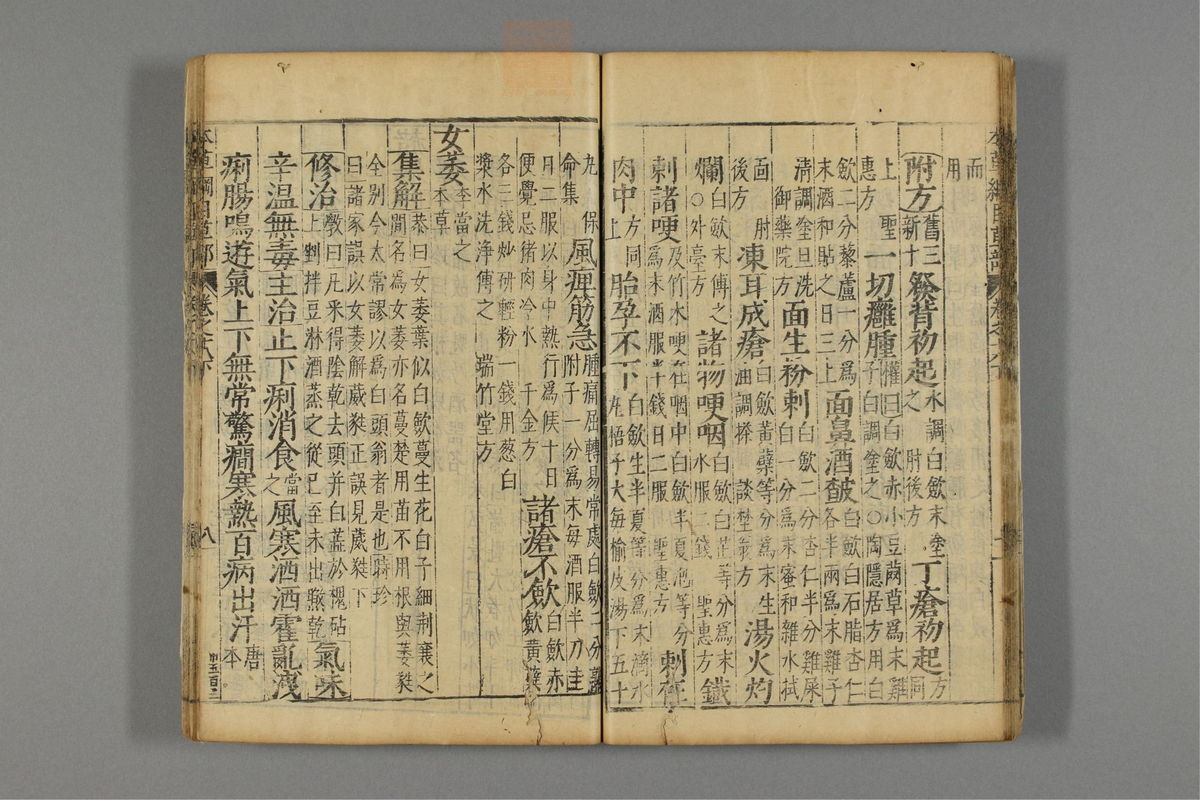 而用
附方舊三新十發背初起水調白歛末塗之肘後方丁瘡初起方同
上聖惠方一切癰腫權曰白歛赤小豆䒽草爲末雞子白調塗之○陶隱居方用白
歛二分藜蘆一分爲末酒和貼之日三上面鼻酒皶白歛白石脂杏仁各半兩爲末雞子
清調塗旦洗御藥院方面生粉刺白歛二分杏仁半分雞屎白一分爲末蜜和雜水拭
面肘後方凍耳成瘡白歛黃蘗等分爲末生油調搽談埜翁方湯火灼
爛白歛末傅之○外臺方諸物哽咽白歛白芷等分爲末水服二錢聖惠方鐵
刺諸哽及竹木哽在咽中白歛半夏泡等分爲末酒服半錢日二服聖惠方刺在
肉中方同上胎孕不下白歛生半夏等分爲末滴水丸梧子大每榆皮湯下五十
丸保命集風痺筋急腫痛屈轉易常處白歛二分熟附子一分爲末每酒服半刀圭
日二服以身中熱行爲候十日便覺忌猪肉冷水千金方諸瘡不歛白歛赤歛黃蘗
各三錢炒研輕粉一錢用葱白漿水洗淨傅之瑞竹堂方
女萎李當之本草
集解恭曰女萎葉似白歛蔓生花白子細荊襄之間名爲女萎亦名蔓楚用苗不用根與萎蕤
全別今太常謬以爲白頭翁者是也時珍曰諸家誤以女萎解葳蕤正誤見葳蕤下
修治斆曰凡采得陰乾去頭并白蕊於槐砧上剉拌豆淋酒蒸之從巳至未出晒乾氣味
辛溫無毒主治止下痢消食當之風寒洒洒霍亂洩
痢腸鳴遊氣上下無常驚癇寒熱百病出汗唐本
本草綱目草部